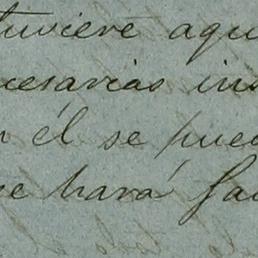 tuviere aqu
cesarias ins
n él se pued
se hará fac